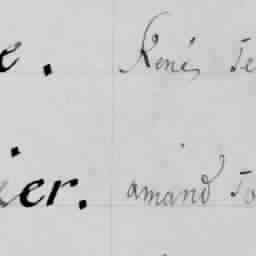 e. René Te
ier. amand To